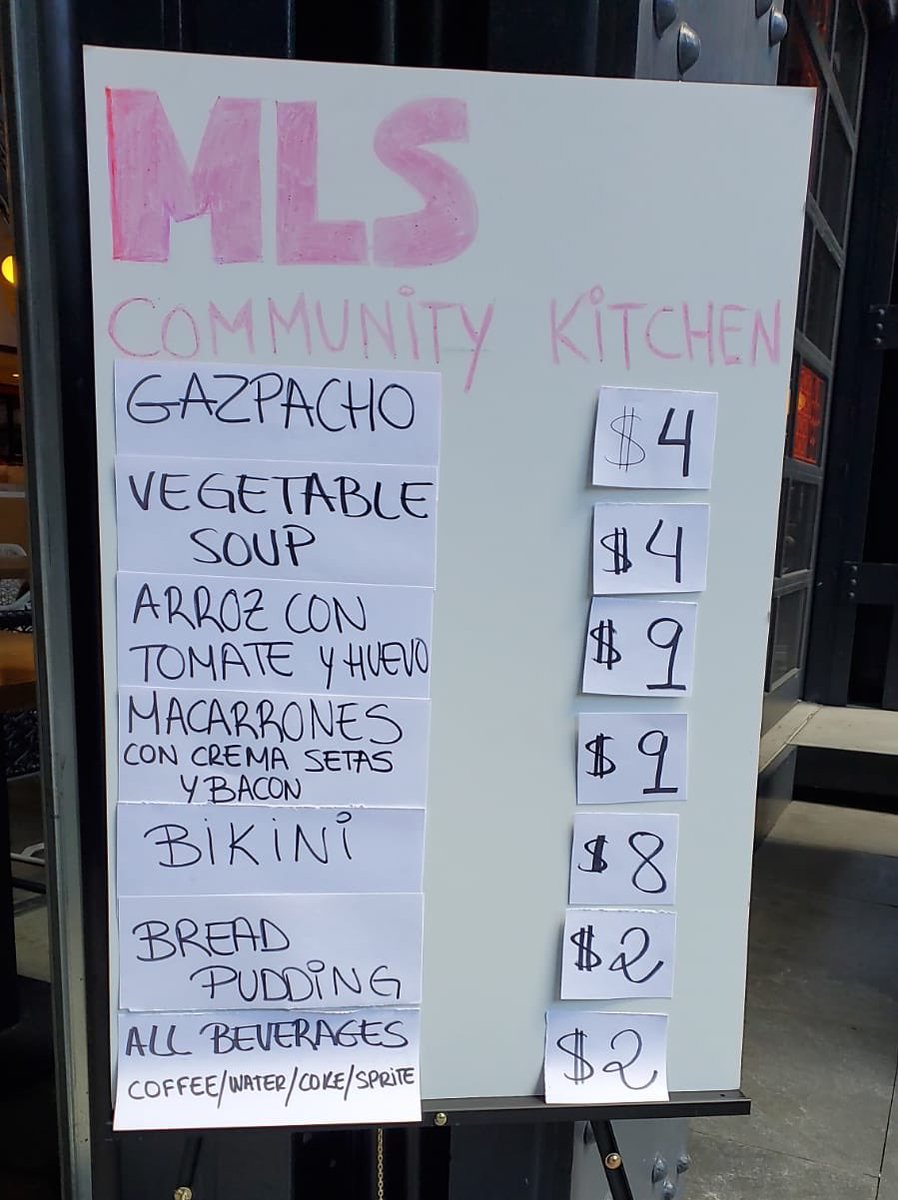 MLS
COMMUNITY KITCHEN
GAZPACHO $4
VEGETABLE
SOUP $4
ARROZ CON
TOMATE Y HUEVO $9
MACARRONES
CON CREMA SETAS
Y BACON $9
BIKINI $8
BREAD
PUDDING $2
ALL BEVERAGES
COFFEE/WATER/COKE/SPRITE $2